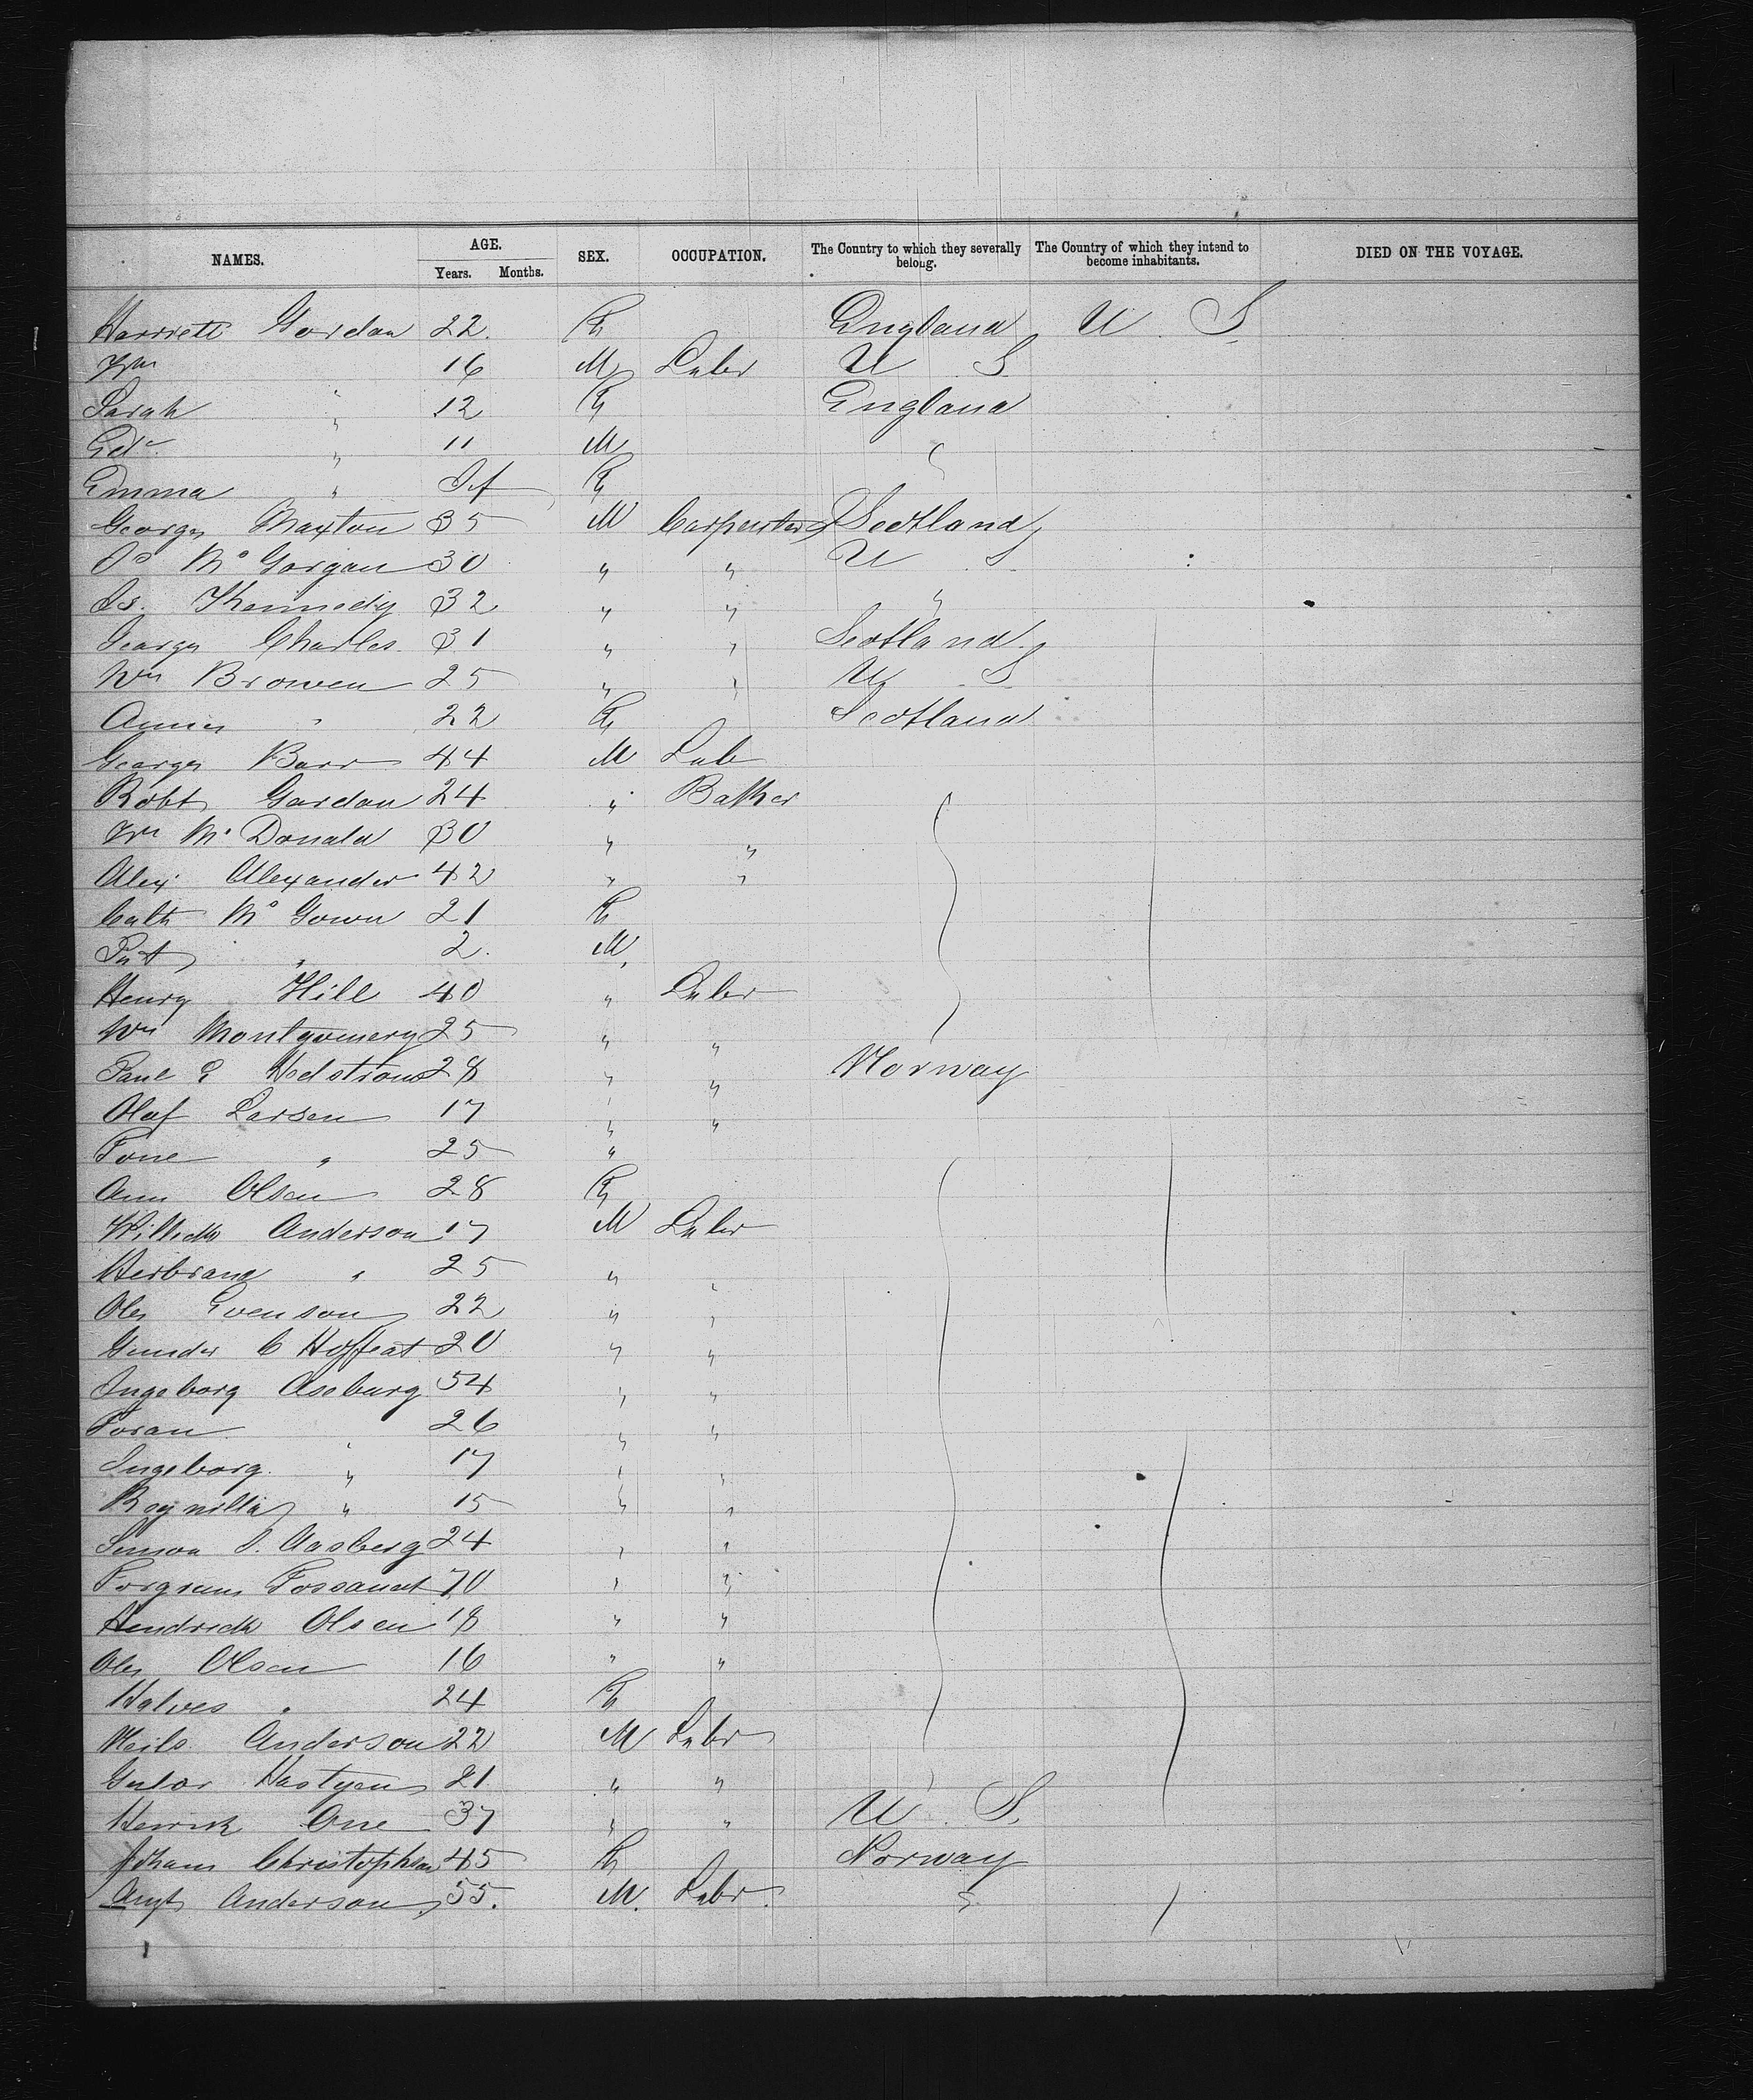 NAMES. AGE. Years. Months. SEX. OCCUPATION. The Country to which they severally belong. The Country of which they intend to become inhabitants. DIED ON THE VOYAGE.
Harriett Gordan 22. F England U S
Wm 16 M Labr U S
Sarah " 12 F England
Edw " 11 M "
Emma " Inf F
George Maxton 35 M Carpenter Scotland
Jo McGorgan 30 " " U S
Js. Kennedy 32 " " "
George Charles 31 " " Scotland
Wm Browen 25 " " U S
Annie " 22 F Scotland
George Barr 44 M Lab
Robt Gardan 24 " Baker
Wm McDonald 30 " "
Alex Alexander 42 " "
Cath McGown 21 F
Pat " 2. M
Henry Hill 40 " Labr
Wm Montgomery 25 " "
Paul E Hedstrom 28 " " Norway
Olaf Larsen 17 " "
Tone " 25 "
Ann Olsen 28 F
Anderson 17 M Labr
Herbrand " 25 " "
Ole Evenson 22 " "
Gunder C 20 " "
Ingeborg Aseburg 54 " "
Toran 26 " "
Ingeborg " 17 " "
Ragnilla " 15 " "
Simon J. Aasberg 24 " "
70 " "
Hendrick Olsen 18 " "
Ole Olsen 16 " "
" 24 F
Neils Anderson 22 M Labr
21 " "
Henrik One 37 " " U S.
Johan Christophson 45 F Norway
Anderson 55. M. Labr. "